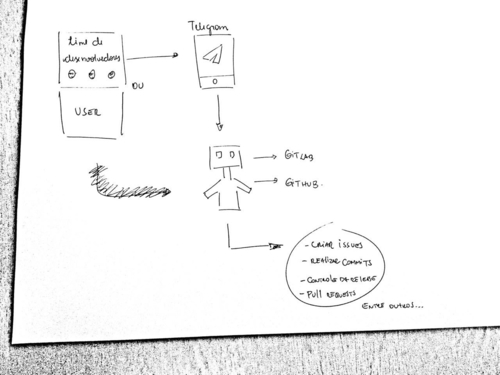 Telegram
time de
desenvolvedores
OU
USER
GITLAB
GITHUB.
- CRIAR ISSUES
- REALIZAR COMMITS
- CONTROLE DE RELEASE
- PULL REQUESTS
ENTRE OUTROS...